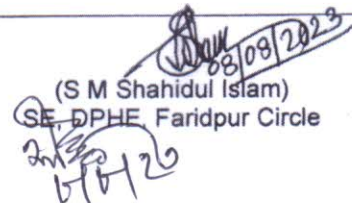 08/08/2023
(S M Shahidul Islam)
SE, DPHE, Faridpur Circle